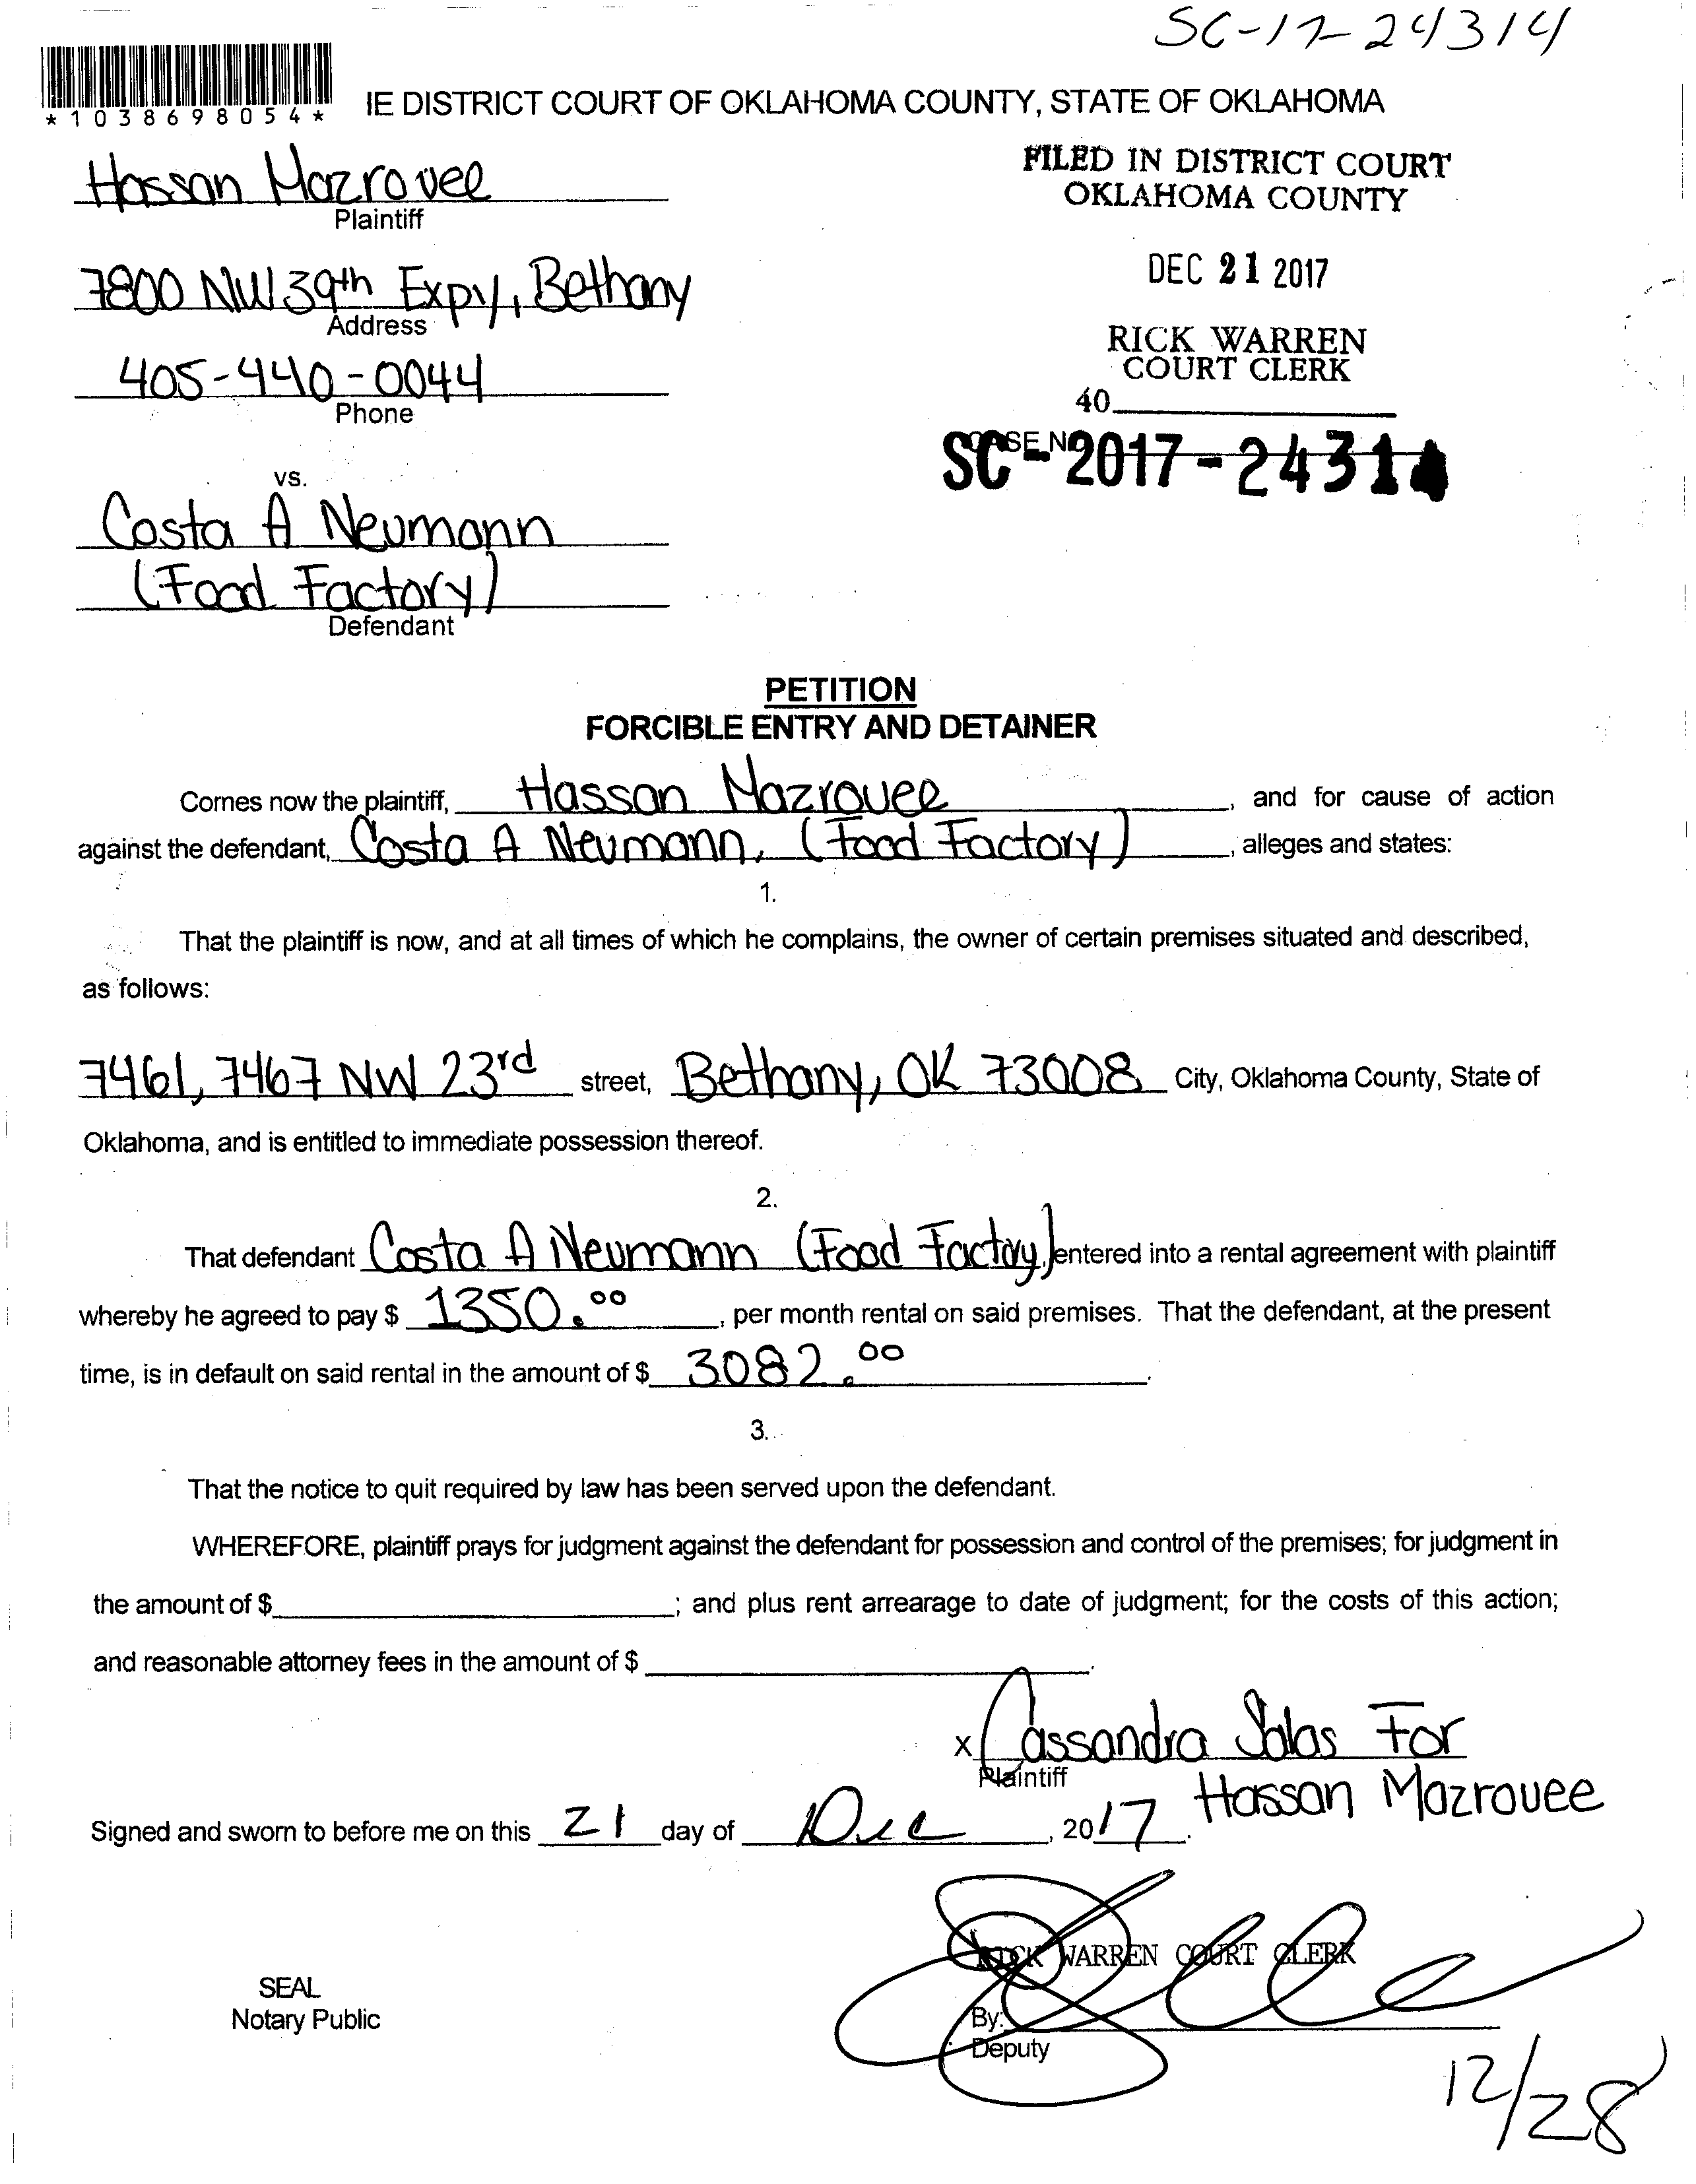 SC-17-24314
*1038698054*
IE DISTRICT COURT OF OKLAHOMA COUNTY, STATE OF OKLAHOMA
Hassan Mazrouee
Plaintiff
FILED IN DISTRICT COURT
OKLAHOMA COUNTY
7800 NW 39th Expy, Bethany
Address
DEC 21 2017
405-440-0044
Phone
RICK WARREN
COURT CLERK
40
CASE NO
SC-2017-24314
vs.
Costa A Neumann
(Food Factory)
Defendant
PETITION
FORCIBLE ENTRY AND DETAINER
Comes now the plaintiff, Hassan Mazrouee, and for cause of action
against the defendant, Costa A Neumann, (Food Factory), alleges and states:
1.
That the plaintiff is now, and at all times of which he complains, the owner of certain premises situated and described,
as follows:
7461, 7467 NW 23rd street, Bethany, OK 73008 City, Oklahoma County, State of
Oklahoma, and is entitled to immediate possession thereof.
2.
That defendant Costa A Neumann (Food Factory,) entered into a rental agreement with plaintiff
whereby he agreed to pay $ 1350.00, per month rental on said premises. That the defendant, at the present
time, is in default on said rental in the amount of $ 3082.00.
3.
That the notice to quit required by law has been served upon the defendant.
WHEREFORE, plaintiff prays for judgment against the defendant for possession and control of the premises; for judgment in
the amount of $ ; and plus rent arrearage to date of judgment; for the costs of this action;
and reasonable attorney fees in the amount of $ .
x Cassandra Salas For
Plaintiff
Hassan Mazrouee
Signed and sworn to before me on this 21 day of Dec, 2017.
RICK WARREN COURT CLERK
SEAL
Notary Public
By:
Deputy
12/28